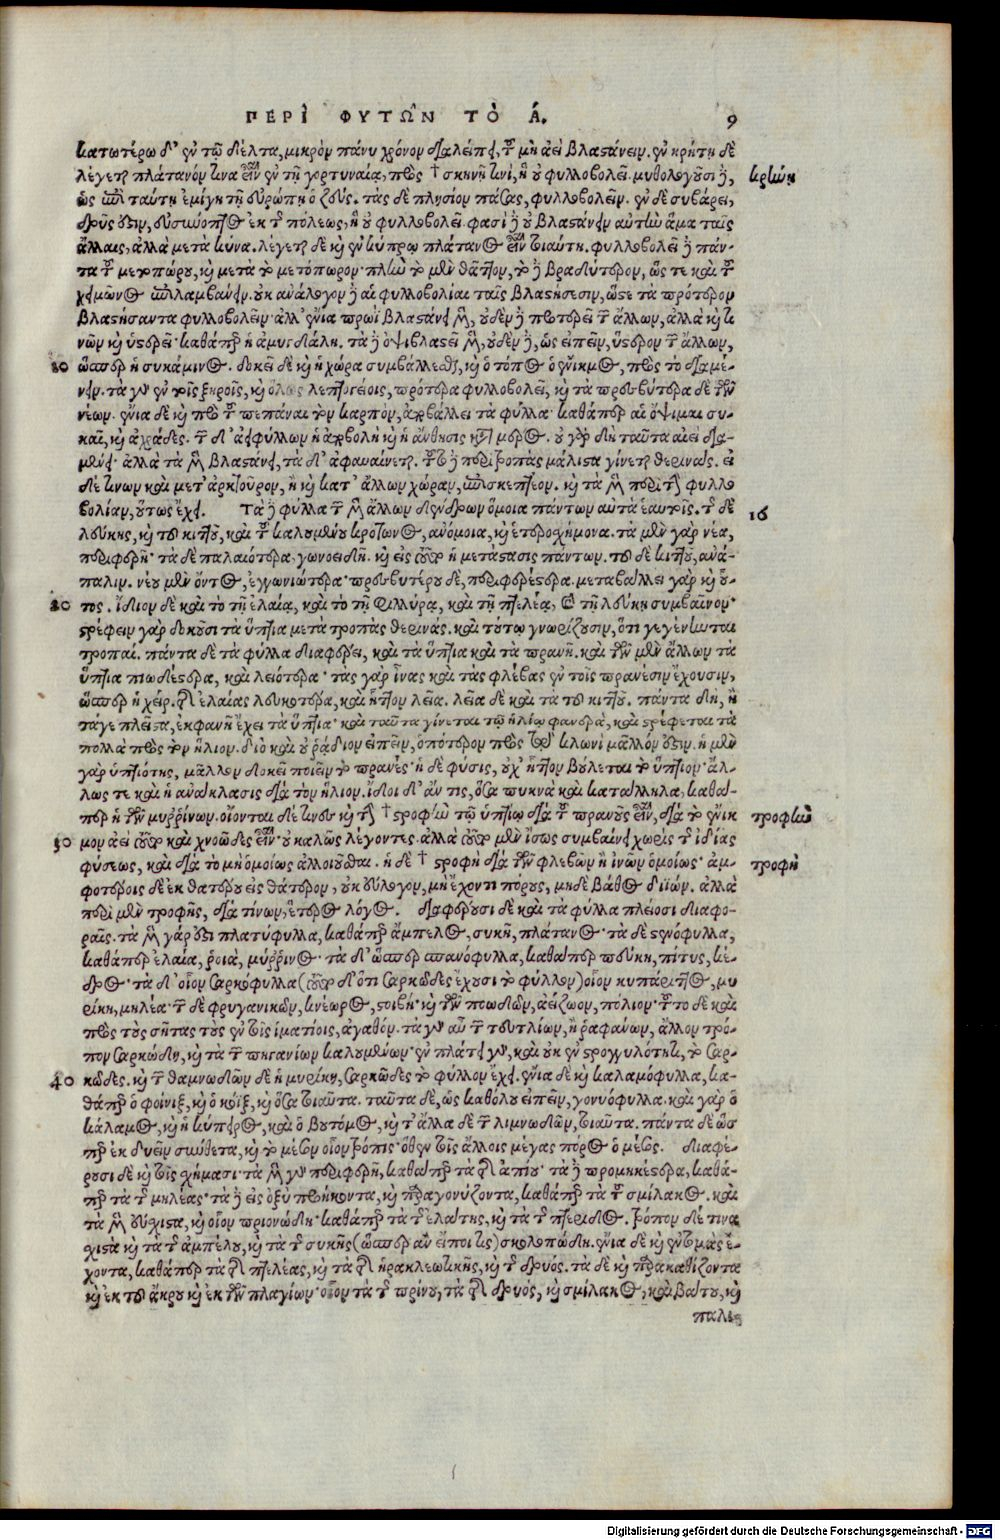 ΠΕΡῚ ΦΥΤΩ͂Ν ΤῸ Α. 9
κατωτέρω δ' ἐν τῷ δέλτα, μικρὸν πάνυ χρόνον διαλείπει, τοῦ μὴ ἀεὶ βλαστάνειν. ἐν κρήτῃ δὲ
λέγεται πλάτανόν τινα εἶναι ἐν τῇ γορτυναίᾳ, πρὸς † σκηνῇ τινὶ, ἣ οὐ φυλλοβολεῖ. μυθολογοῦσι δὲ, κρήνῃ
ὡς ἐπὶ ταύτῃ ἐμίγη τῇ εὐρώπῃ ὁ ζεύς. τὰς δὲ πλησίον πάσας, φυλλοβολεῖν. ἐν δὲ συβάρει,
δρῦς ἐστιν, εὐσύνοπτος ἐκ τῆς πόλεως, ἣ οὐ φυλλοβολεῖ. φασὶ δὲ οὐ βλαστάνειν αὐτὴν ἅμα ταῖς
ἄλλαις, ἀλλὰ μετὰ κύνα. λέγεται δὲ καὶ ἐν κύπρῳ πλάτανος εἶναι τοιαύτη. φυλλοβολεῖ δὲ πάν-
τα τοῦ μετοπώρου, καὶ μετὰ τὸ μετόπωρον· πλὴν τὸ μὲν θᾶττον, τὸ δὲ βραδύτερον, ὥς τε καὶ τοῦ
χειμῶνος ἐπιλαμβάνειν. οὐκ ἀνάλογον δὲ αἱ φυλλοβολίαι ταῖς βλαστήσεσιν, ὥστε τὰ πρότερον
βλαστήσαντα φυλλοβολεῖν· ἀλλ' ἔνια πρωὶ βλαστάνει μὲν, οὐδὲν δὲ προτερεῖ τῶν ἄλλων, ἀλλὰ καί τι
νῶν καὶ ὑστερεῖ· καθάπερ ἡ ἀμυγδάλη. τὰ δὲ ὀψιβλαστεῖ μὲν, οὐδὲν δὲ, ὡς εἰπεῖν, ὕστερον τῶν ἄλλων,
10 ὥσπερ ἡ συκάμινος. δοκεῖ δὲ καὶ ἡ χώρα συμβάλλεσθαι, καὶ ὁ τόπος ὁ ἔνικμος, πρὸς τὸ διαμέ-
νειν. τὰ γὰρ ἐν τοῖς ξηροῖς, καὶ ὅλως λεπτογείοις, πρότερα φυλλοβολεῖ, καὶ τὰ πρεσβύτερα δὲ τῶν
νέων. ἔνια δὲ καὶ πρὸ τοῦ πεπάναι τὸν καρπὸν, ἀποβάλλει τὰ φύλλα· καθάπερ αἱ ὄψιμαι συ-
καῖ, καὶ ἀχράδες. τῶν δ' ἀειφύλλων ἡ ἀποβολὴ καὶ ἡ αὔανσις κατὰ μέρος. οὐ γὰρ δὴ ταῦτα αἰεὶ δια-
μένει· ἀλλὰ τὰ μὲν βλαστάνει, τὰ δ' ἀφαυαίνεται. τοῦτο δὲ περὶ τροπὰς μάλιστα γίνεται θερινάς. εἰ
δέ τινων καὶ μετ' ἀρκτοῦρον, ἢ καὶ κατ' ἄλλην χώραν, ἐπισκεπτέον. καὶ τὰ μὲν περὶ τὴν φυλλο
βολίαν, οὕτως ἔχει. Τὰ δὲ φύλλα τῶν μὲν ἄλλων δένδρων ὅμοια πάντων αὐτὰ ἑαυτοῖς. τῆς δὲ 16
λεύκης, καὶ τοῦ κιττοῦ, καὶ τοῦ καλουμένου κρότωνος, ἀνόμοια, καὶ ἑτεροσχήμονα. τὰ μὲν γὰρ νέα,
περιφερῆ· τὰ δὲ παλαιότερα, γωνοειδῆ. καὶ εἰς τοῦτο ἡ μετάστασις πάντων. τοῦ δὲ κιττοῦ, ἀνά-
παλιν. νέου μὲν ὄντος, ἐγγωνιώτερα· πρεσβυτέρου δὲ, περιφερέστερα. μεταβάλλει γὰρ καὶ οὗ-
20 τος. ἴδιον δὲ καὶ τὸ τῇ ἐλαίᾳ, καὶ τὸ τῇ φιλύρᾳ, καὶ τῇ πτελέᾳ, καὶ τῇ λεύκῃ συμβαῖνον·
στρέφειν γὰρ δοκοῦσι τὰ ὕπτια μετὰ τροπὰς θερινάς. καὶ τούτῳ γνωρίζουσιν, ὅτι γεγένηνται
τροπαί. πάντα δὲ τὰ φύλλα διαφέρει, κατὰ τὰ ὕπτια καὶ τὰ πρανῆ. καὶ τῶν μὲν ἄλλων τὰ
ὕπτια ποωδέστερα, καὶ λειότερα· τὰς γὰρ ἶνας καὶ τὰς φλέβας ἐν τοῖς πρανέσιν ἔχουσιν,
ὥσπερ ἡ χείρ. τῆς ἐλαίας λευκότερα, καὶ ἧττον λεῖα. λεῖα δὲ καὶ τὰ τοῦ κιττοῦ. πάντα δὴ, ἢ
τάγε πλεῖστα, ἐκφανῆ ἔχει τὰ ὕπτια· καὶ ταῦτα γίνεται τῷ ἡλίῳ φανερὰ, καὶ στρέφεται τὰ
πολλὰ πρὸς τὸν ἥλιον. διὸ καὶ οὐ ῥᾴδιον εἰπεῖν, ὁπότερον πρὸς τῷ κλωνὶ μᾶλλόν ἐστιν. ἡ μὲν
γὰρ ὑπτιότης, μᾶλλον δοκεῖ ποιεῖν τὸ πρανές· ἡ δὲ φύσις, οὐχ ἧττον βούλεται τὸ ὕπτιον· ἄλ-
λως τε καὶ ἡ ἀνάκλασις διὰ τὸν ἥλιον. ἴδοι δ' ἄν τις, ὅσα πυκνὰ καὶ κατάλληλα, καθά-
περ ἡ τῶν μυρρίνων. οἴονται δέ τινες καὶ τὴν † στροφὴν τῷ ὑπτίῳ διὰ τοῦ πρανοῦς εἶναι, διὰ τὸ ἔνικ τροφὴν
30 μον ἀεὶ τοῦτο καὶ χνοῶδες εἶναι· οὐ καλῶς λέγοντες. ἀλλὰ τοῦτο μὲν ἴσως συμβαίνει χωρὶς τῆς ἰδίας
φύσεως, καὶ διὰ τὸ μὴ ὁμοίως ἁλιοῦσθαι. ἡ δὲ † στροφὴ διὰ τῶν φλεβῶν ἢ ἰνῶν ὁμοίως· ἀμ- τροφὴ
φοτέροις δὲ ἐκ θατέρου εἰς θάτερον, οὐκ εὔλογον, μὴ ἔχοντι πόρους, μηδὲ βάθος διϊών. ἀλλὰ
περὶ μὲν τροφῆς, διὰ τίνων, ἕτερος λόγος. διαφέρουσι δὲ καὶ τὰ φύλλα πλείοσι διαφο-
ραῖς. τὰ μὲν γάρ ἐστι πλατύφυλλα, καθάπερ ἄμπελος, συκῆ, πλάτανος· τὰ δὲ στενόφυλλα,
καθάπερ ἐλαία, ῥοιὰ, μύρρινος· τὰ δ' ὥσπερ σπανόφυλλα, καθάπερ πεύκη, πίτυς, κέ-
δρος· τὰ δ' οἷον σαρκόφυλλα (τοῦτο δ' ὅτι σαρκῶδες ἔχουσι τὸ φύλλον) οἷον κυπάριττος, μυ
ρίκη, μηλέα· τῶν δὲ φρυγανικῶν, κνέωρος, στοιβή· καὶ τῶν ποωδῶν, ἀείζωον, πόλιον· τοῦτο δὲ καὶ
πρὸς τοὺς σῆτας τοὺς ἐν τοῖς ἱματίοις, ἀγαθόν. τὰ γὰρ αὖ τῶν τευτλίων, ἢ ῥαφάνων, ἄλλον τρό-
πον σαρκώδη, καὶ τὰ τῶν πηγανίων καλουμένων· ἐν πλάτει γὰρ, καὶ οὐκ ἐν στρογγυλότητι, τὸ σαρ-
40 κῶδες. καὶ τῶν θαμνωδῶν δὲ ἡ μυρίκη, σαρκῶδες τὸ φύλλον ἔχει. ἔνια δὲ καὶ καλαμόφυλλα, κα-
θάπερ ὁ φοίνιξ, καὶ ὁ κόϊξ, καὶ ὅσα τοιαῦτα. ταῦτα δὲ, ὡς καθόλου εἰπεῖν, γονυόφυλλα. καὶ γὰρ ὁ
κάλαμος, καὶ ἡ κύπειρος, καὶ ὁ βούτομος, καὶ τἄλλα δὲ τῶν λιμνωδῶν, τοιαῦτα. πάντα δὲ ὥσ
περ ἐκ δυεῖν σύνθετα, καὶ τὸ μέσον οἷον τρόπις· ὅθεν τοῖς ἄλλοις μέγας πόρος ὁ μέσος. διαφέ-
ρουσι δὲ καὶ τοῖς σχήμασι· τὰ μὲν γὰρ περιφερῆ, καθάπερ τὰ τῆς ἀπίου· τὰ δὲ προμηκέστερα, καθά-
περ τὰ τῆς μηλέας· τὰ δὲ εἰς ὀξὺ προήκοντα, καὶ παραγονύζοντα, καθάπερ τὰ τοῦ σμίλακος. καὶ
τὰ μὲν εὐχιστα, καὶ οἷον πριονώδη· καθάπερ τὰ τῆς ἐλάτης, καὶ τὰ τῆς πτέριδος. τρόπον δέ τινα
χιστὰ καὶ τὰ τῆς ἀμπέλου, καὶ τὰ τῆς συκῆς (ὥσπερ ἂν εἴποι τις) σκολοπώδη. ἔνια δὲ καὶ ἐντομὰς ἔ-
χοντα, καθάπερ τὰ τῆς πτελέας, καὶ τὰ τῆς ἡρακλεωτικῆς, καὶ τῆς δρυός. τὰ δὲ καὶ παρακαθίζοντα
καὶ ἐκ τοῦ ἄκρου καὶ ἐκ τῶν πλαγίων· οἷον τὰ τῆς πρίνου, τὰ τῆς δρυός, καὶ σμίλακος, καὶ βάτου, καὶ
παλιου
Digitalisierung gefördert durch die Deutsche Forschungsgemeinschaft - DFG